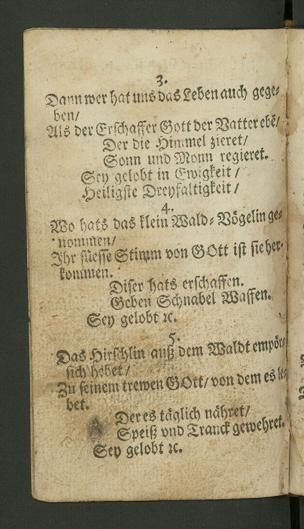 3.
Dann wer hat uns das Leben auch gege-
ben/
Als der Erschaffer Gott der Vatter ebē/
Der die Himmel zieret/
Sonn und Monn regieret.
Sey gelobt in Ewigkeit/
Heiligste Dreyfaltigkeit/
4.
Wo hats das klein Wald-Vögelin ge-
nommen/
Ihr süesse Stimm von GOtt ist sie her-
kommen.
Diser hats erschaffen.
Geben Schnabel Waffen.
Sey gelobt ꝛc.
5.
Das Hirschlin auß dem Waldt empör-
sich hebet/
Zu seinem trewen GOtt/ von dem es le-
bet.
Der es täglich nähret/
Speiß vnd Tranck gewehret.
Sey gelobt ꝛc.